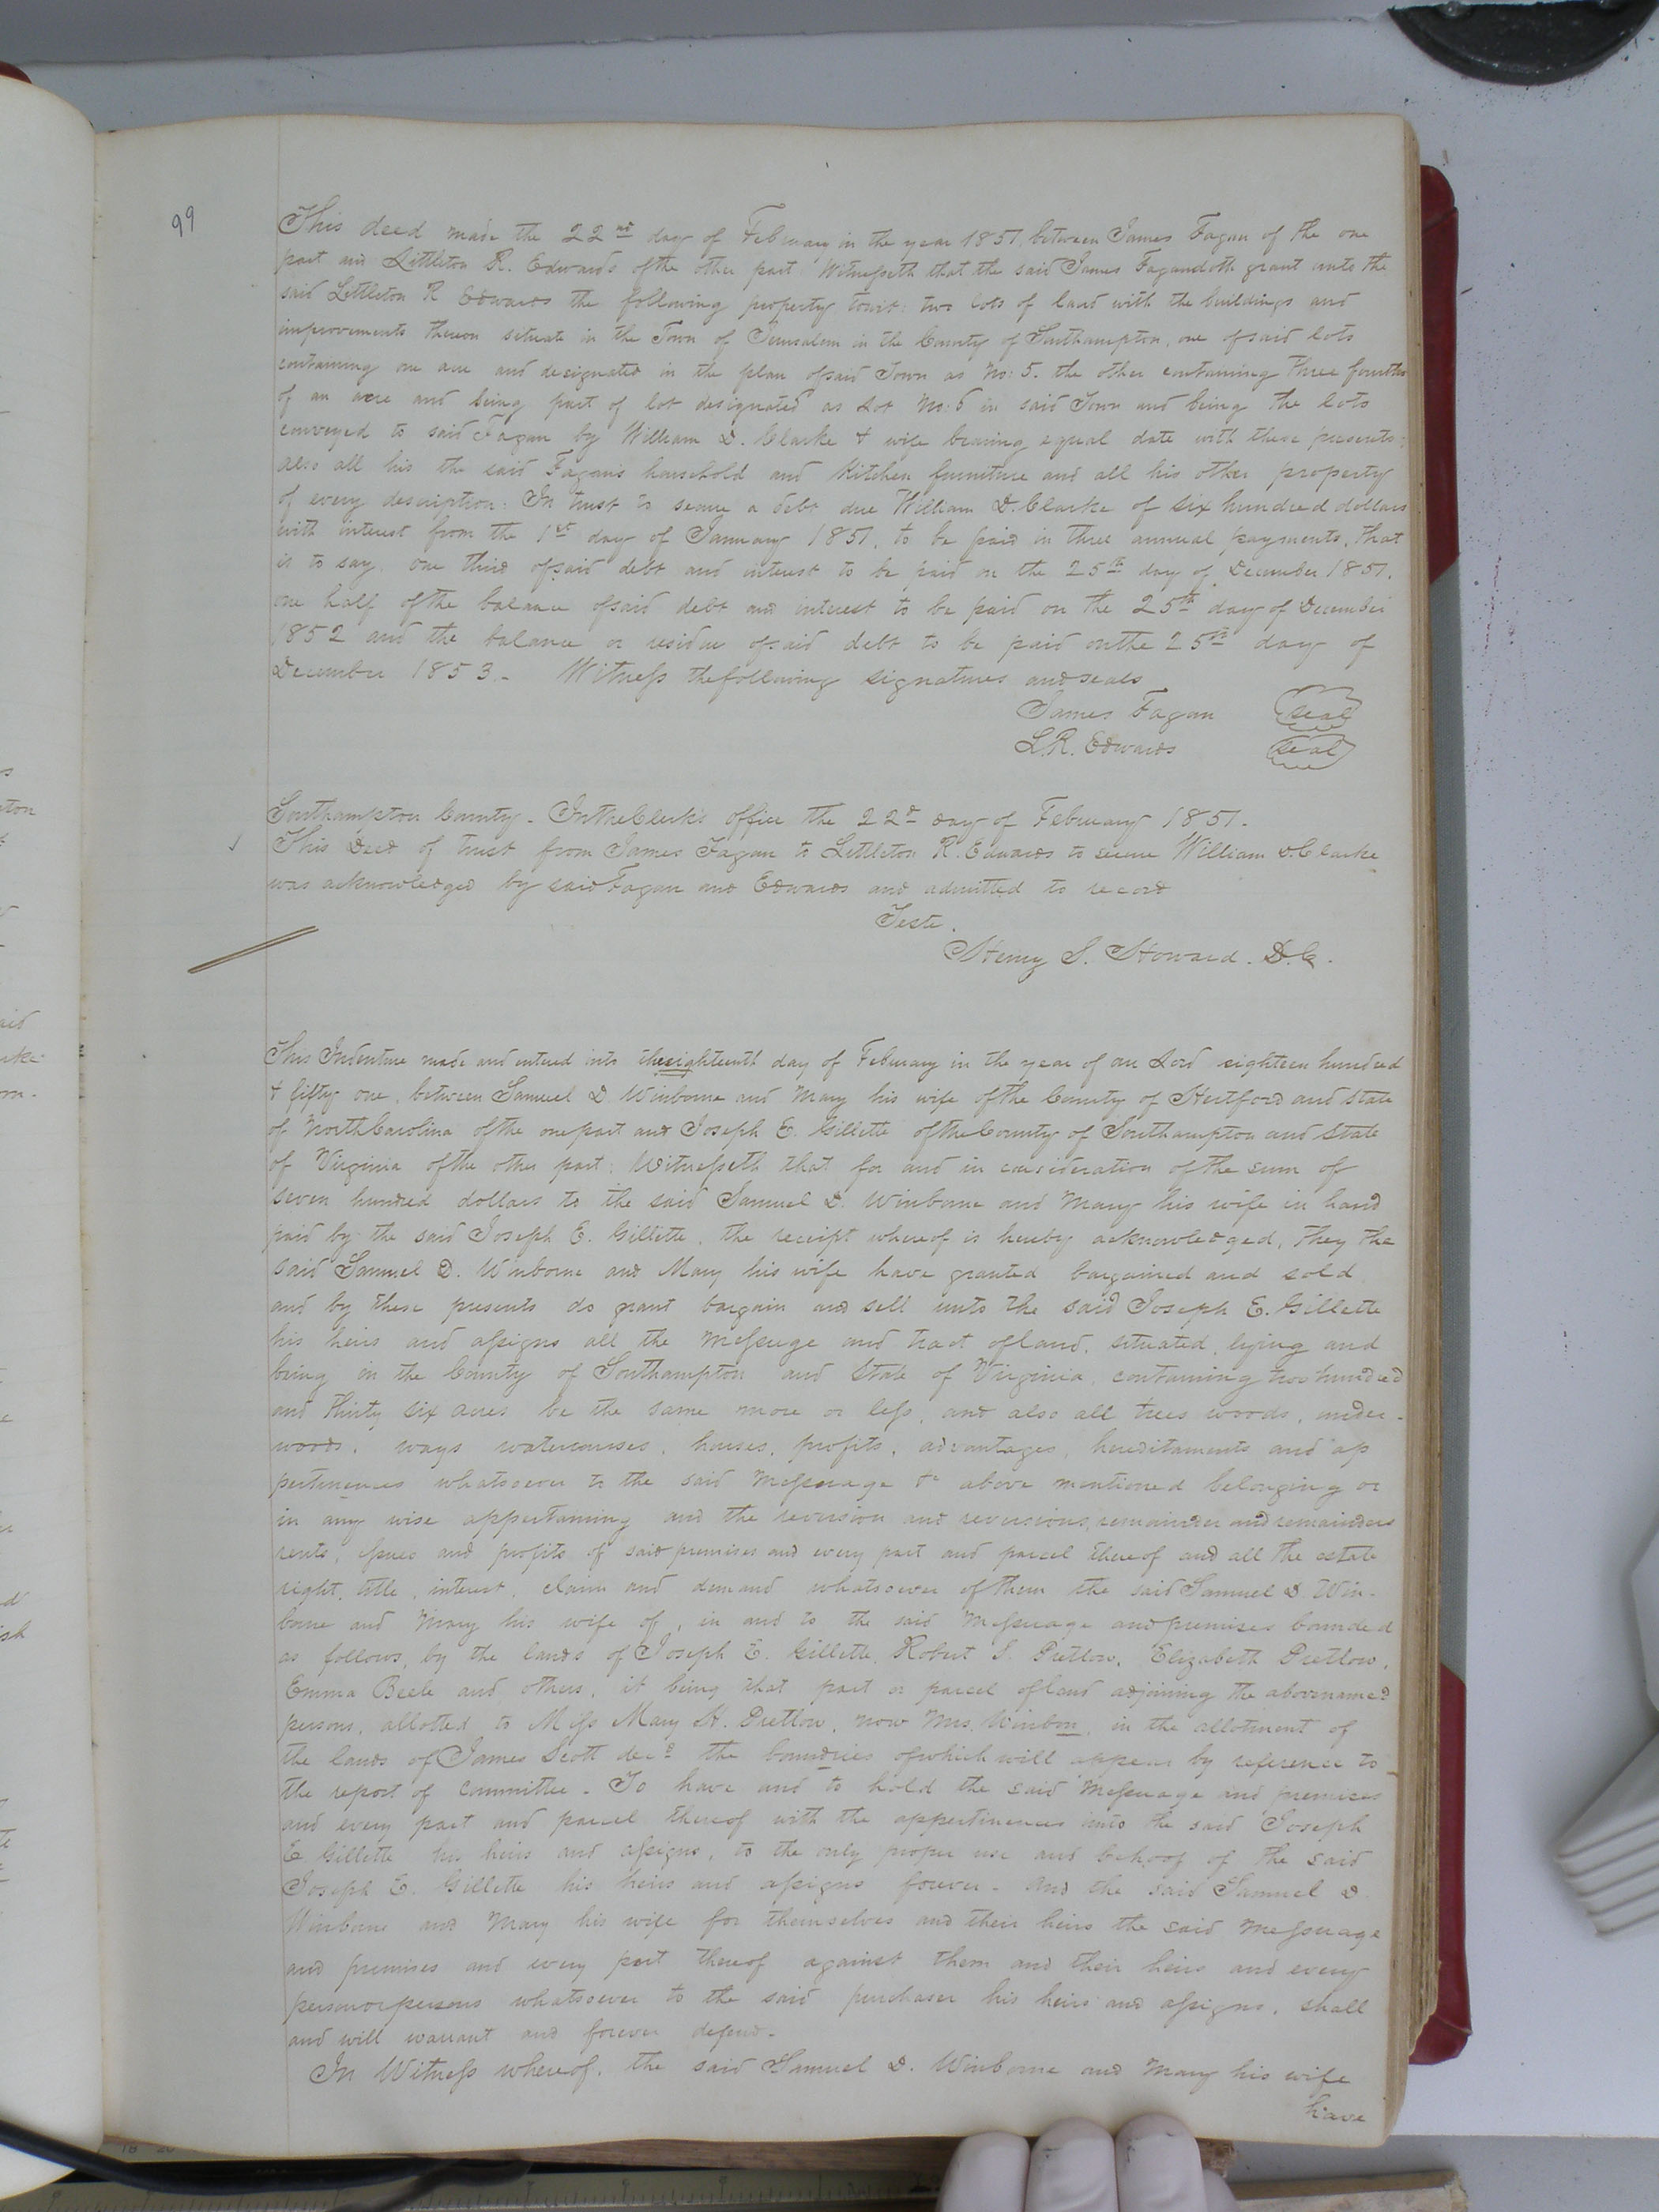 99
This deed made the 22nd day of February in the year 1851, between James Fagan of the one
part and Littleton R. Edwards of the other part: Witnesseth that the said James Fagan doth grant unto the
said Littleton R Edwards the following property towit: two lots of land with the buildings and
improvements thereon situate in the Town of Jerusalem in the County of Southampton, one of said lots
containing one acre and designated in the plan of said Town as No: 5. the other containing three fourths
of an acre and being part of lot designated as Lot No: 6 in said Town and being the lots
conveyed to said Fagan by William D. Clarke & wife bearing equal date with these presents;
also all his the said Fagan's household and kitchen furniture and all his other property
of every description: In trust to secure a debt due William D. Clarke of six hundred dollars
with interest from the 1st day of January 1851, to be paid in three annual payments, that
is to say, one third of said debt and interest to be paid on the 25th day of December 1851.
one half of the balance of said debt and interest to be paid on the 25th day of December
1852 and the balance or residue of said debt to be paid on the 25th day of
December 1853. - Witness the following signatures and seals
James Fagan seal
L.R. Edwards seal
Southampton County - In the Clerk's office the 22d day of February 1851.
This Deed of trust from James Fagan to Littleton R. Edwards to secure William D. Clarke
was acknowledged by said Fagan and Edwards and admitted to record
Teste.
Henry S. Howard. D.C.
This Indenture made and entered into the eighteenth day of February in the year of our Lord eighteen hundred
& fifty one, between Samuel D. Winborne and Mary his wife of the County of Hertford and State
of North Carolina of the one part and Joseph E. Gillette of the County of Southampton and State
of Virginia of the other part: Witnesseth that for and in consideration of the sum of
seven hundred dollars to the said Samuel D. Winborne and Mary his wife in hand
paid by the said Joseph E. Gillette, the receipt whereof is hereby acknowledged, they the
said Samuel D. Winborne and Mary his wife have granted bargained and sold
and by these presents do grant bargain and sell unto the said Joseph E. Gillette
his heirs and assigns all the Messuage and tract of land, situated, lying and
being in the County of Southampton and State of Virginia, containing two hundred
and thirty six acres be the same more or less, and also all trees woods, under-
woods, ways watercourses, houses, profits, advantages, hereditaments and ap
pertinences whatsoever to the said Messuage &c above mentioned belonging or
in any wise appertaining and the reversion and reversions, remainder and remainders
rents, issues and profits of said premises and every part and parcel thereof and all the estate
right, title, interest, claim and demand whatsoever of them the said Samuel D Win-
borne and Mary his wife of, in and to the said Messuage and premises bounded
as follows, by the lands of Joseph E. Gillette, Robert S. Pretlow, Elizabeth Pretlow,
Emma Beele and others, it being that part or parcel of land adjoining the abovenamed
persons, allotted to Miss Mary H. Pretlow, now Mrs. Winbon, in the allotment of
the lands of James Scott decd the boundries of which will appear by reference to
the report of committee - To have and to hold the said Messuage and premises
and every part and parcel thereof with the appertinences unto the said Joseph
E Gillette his heirs and assigns, to the only proper use and behoof of the said
Joseph E. Gillette his heirs and assigns forever - And the said Samuel D.
Winborne and Mary his wife for themselves and their heirs the said Messuage
and premises and every part thereof against them and their heirs and every
person or persons whatsoever to the said purchaser his heirs and assigns, shall
and will warrant and forever defend -
In Witness whereof, the said Samuel D. Winborne and Mary his wife
have